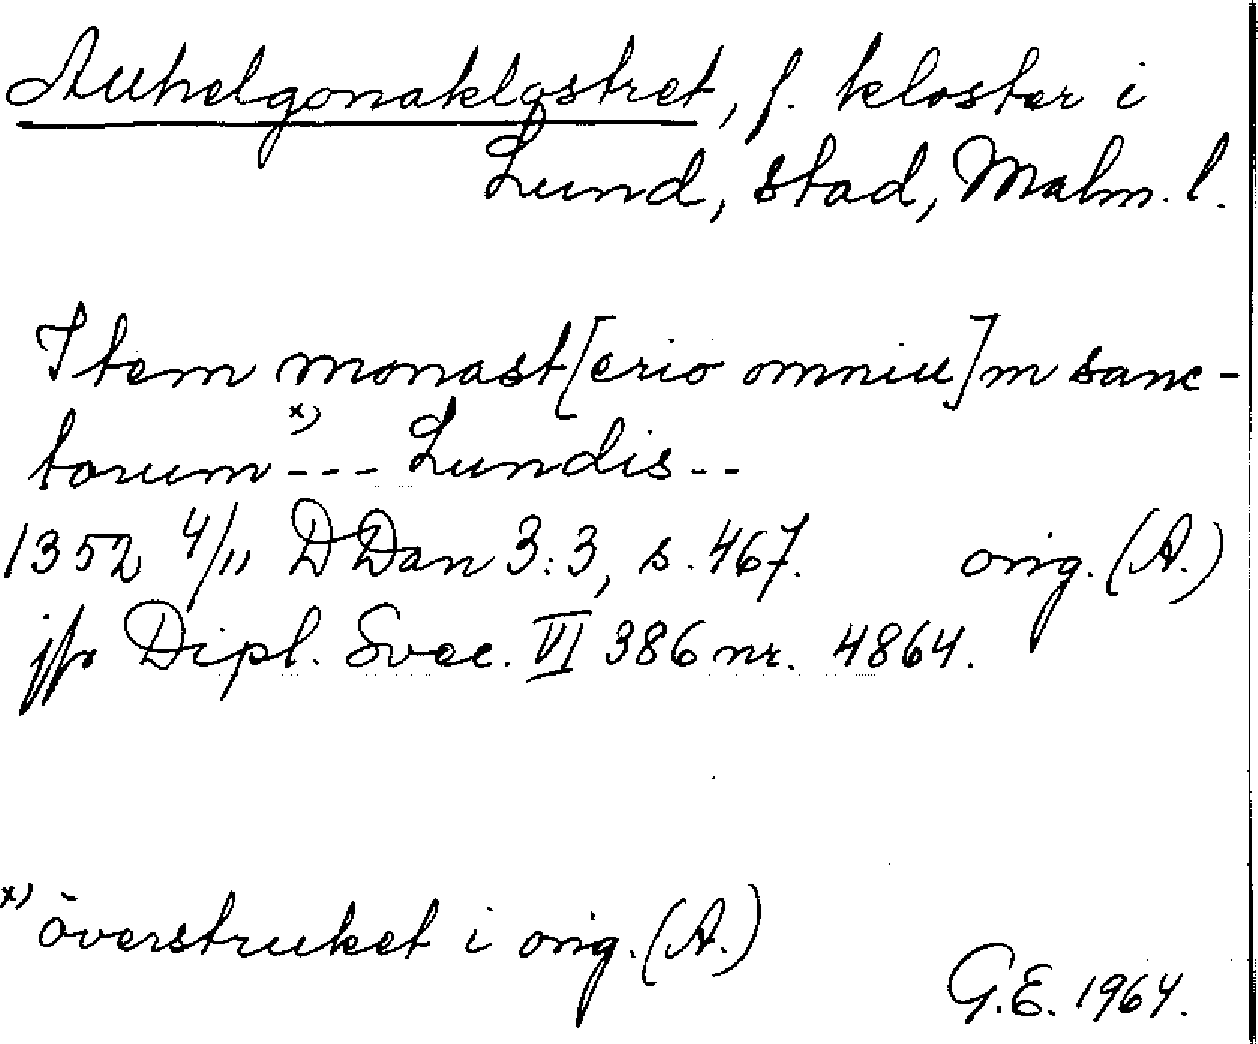 Allhelgonaklostret, f. kloster i
Lund, stad, Malm. l.
Item monast[erio omniu]m sanc-
torum x) --- Lundis --
1352 4/11 DDan 3:3, s. 467. orig. (A.)
jfr Dipl. Svec. VI 386 nr. 4864.
x) överstruket i orig. (A.)
G.E. 1964.